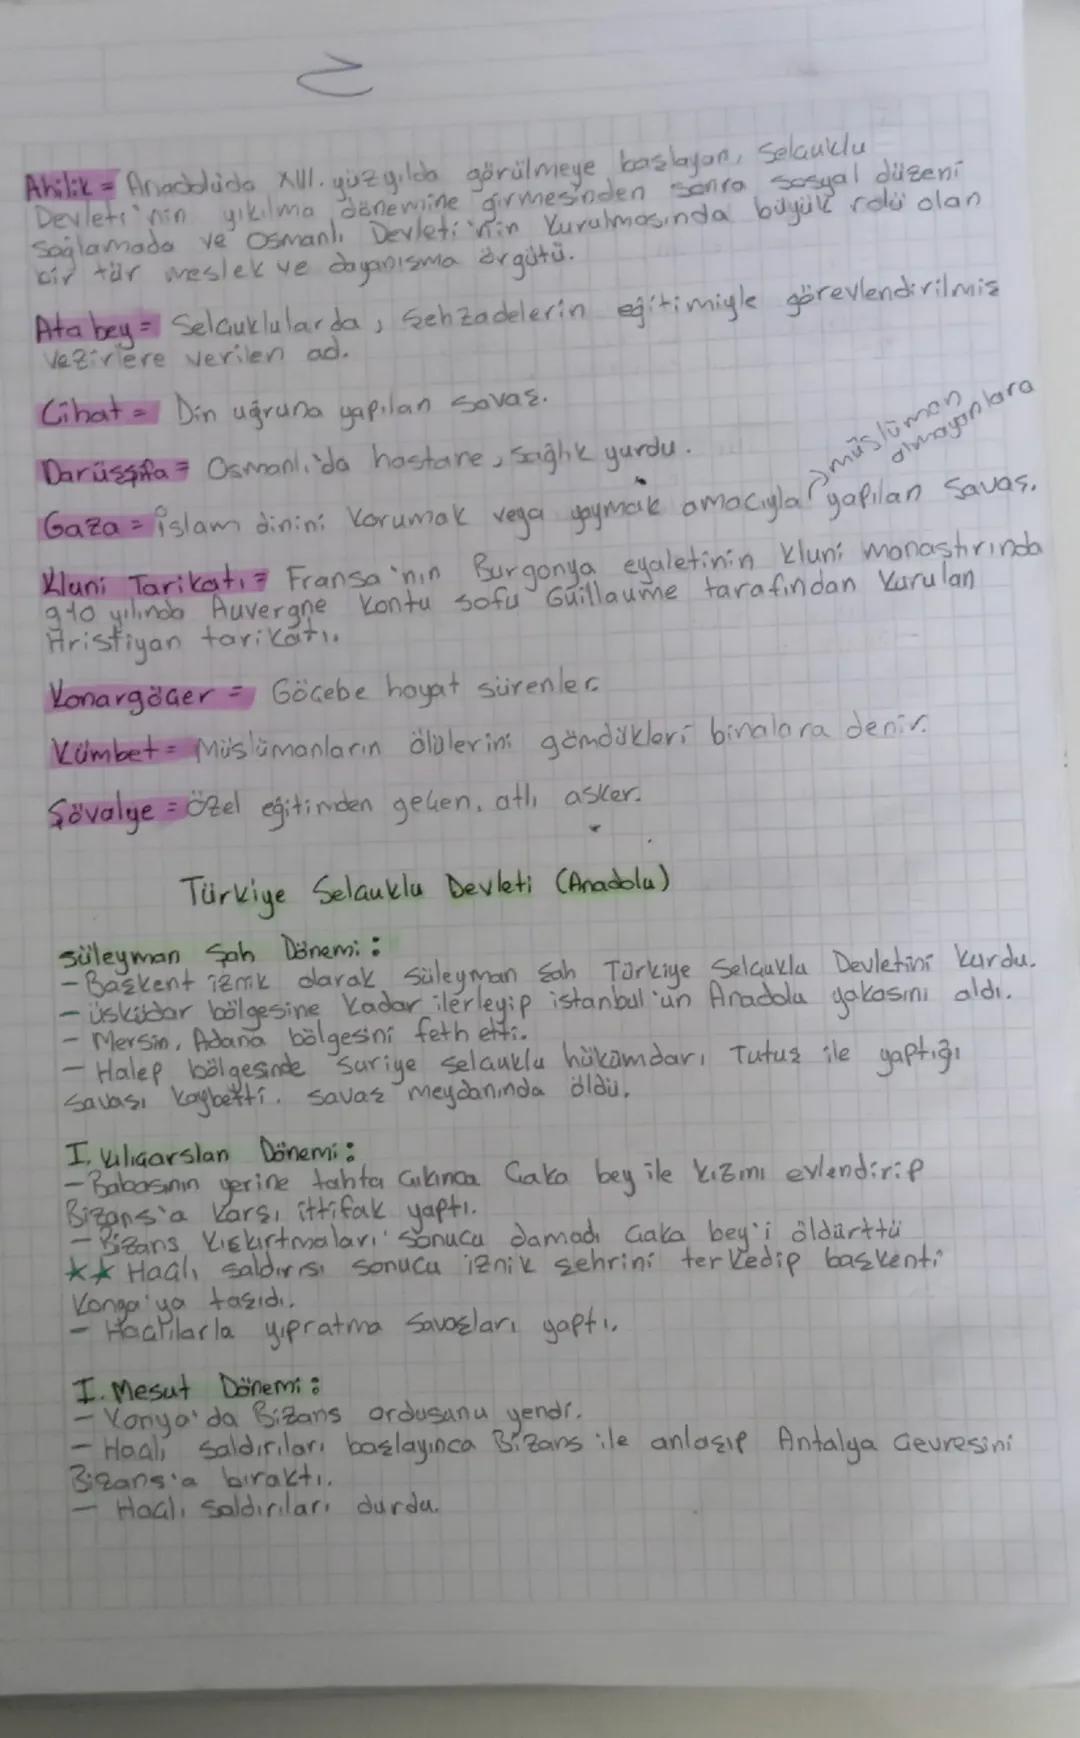 Ahilik = Anadoluda XIII. yüzyılda görülmeye başlayan, Selçuklu
Devleti'nin yıkılma dönemine girmesinden sonra sosyal düzeni
sağlamada ve Osmanlı Devleti'nin kurulmasında büyük rolü olan
bir tür meslek ve dayanışma örgütü.
Ata bey = Selçuklularda, şehzadelerin eğitimiyle görevlendirilmiş
vezirlere verilen ad.
Cihat = Din uğruna yapılan savaş.
müslüman
olmayanlara
Darüşşifa = Osmanlı'da hastane, sağlık yurdu.
Gaza = islam dinini korumak veya yaymak amacıyla yapılan savaş.
Kluni Tarikatı = Fransa'nın Burgonya eyaletinin kluni manastırında
910 yılında Auvergne kontu sofu Guillaume tarafından kurulan
Hristiyan tarikatı.
Konargöçer = Göçebe hayat sürenler
Kümbet = Müslümanların ölülerini gömdükleri binalara denir.
Şövalye = Özel eğitimden geçen, atlı asker.
Türkiye Selçuklu Devleti (Anadolu)
Süleyman Şah Dönemi:
- Başkent iznik olarak Süleyman Şah Türkiye Selçuklu Devletini kurdu.
- Üsküdar bölgesine kadar ilerleyip istanbul'un Anadolu yakasını aldı.
- Mersin, Adana bölgesini feth etti.
- Halep bölgesinde Suriye Selçuklu hükümdarı Tutuş ile yaptığı
savaşı kaybetti. savaş meydanında öldü.
I. Kılıçarslan Dönemi:
- Babasının yerine tahta çıkınca Çaka bey ile kızını evlendirip
Bizans'a karşı ittifak yaptı.
- Bizans kışkırtmaları sonucu damadı Çaka bey'i öldürttü
★★ Haçlı saldırısı sonucu iznik şehrini terkedip başkenti
Konya'ya taşıdı.
- Haçlılarla yıpratma savaşları yaptı.
I. Mesut Dönemi:
- Konya'da Bizans ordusunu yendi.
- Haçlı saldırıları başlayınca Bizans ile anlaşıp Antalya çevresini
Bizans'a bıraktı.
- Haçlı saldırıları durdu.